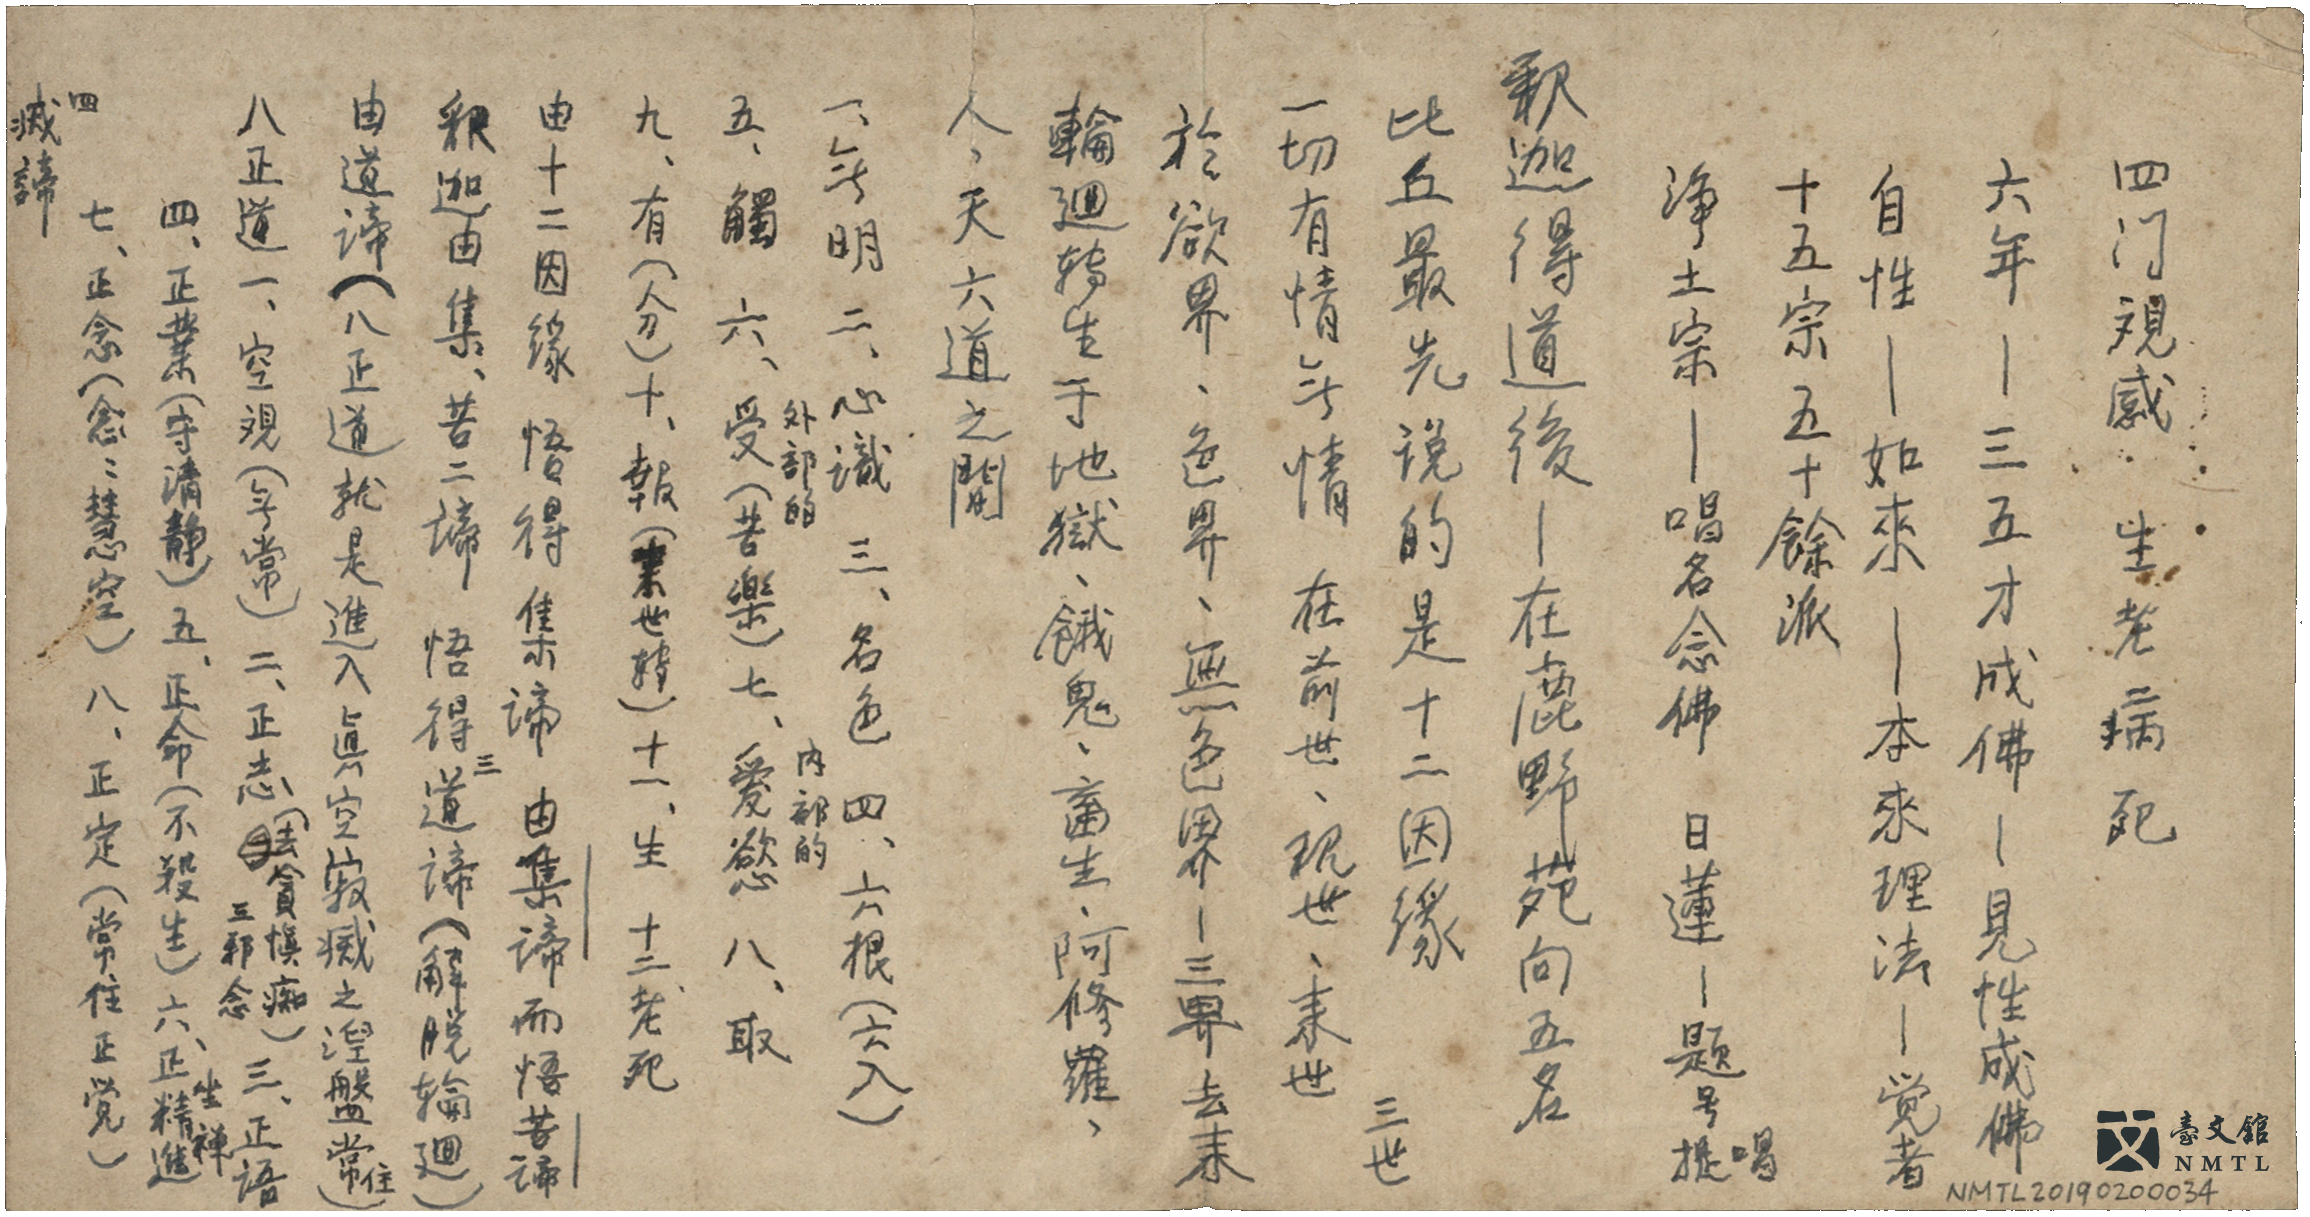 四门覌感　生老病死
六年—三五才成佛—見性成佛
自性—如來—本來理法—覚者
十五宗五十餘派
淨土宗—唱名念佛　日蓮—題号提唱
釈迦得道後—在鹿野苑向五名
比丘最先说的是十二因緣
三世
一切有情無情　在前世、現世、末世
於欲界、色界、無色界—三界去来
輪廻轉生于地獄、餓鬼、畜生、阿修羅、
人、天六道之間
一、無明　二、心識　三、名色　四、六根（六入）
外部的　内部的
五、觸　六、受（苦樂）七、愛慾　八、取
九、有（分）十、報（業世轉）十一、生　十二、老死
由十二因緣　悟得　集諦　由集諦而悟苦諦
釈迦由集、苦二諦　悟得三道諦（解脱輪廻）
由道諦（八正道就是進入眞空寂滅之湼盤常住）
八正道一、空覌（無常）二、正志（去貪慎痴）三、正語
三邪念
四、正業（守清静）五、正命（不殺生）六、正精進
坐禅
七、正念（念〻慧空）八、正定（常住正覚）
四
滅諦
臺文館
NMTL
NMTL20190200034